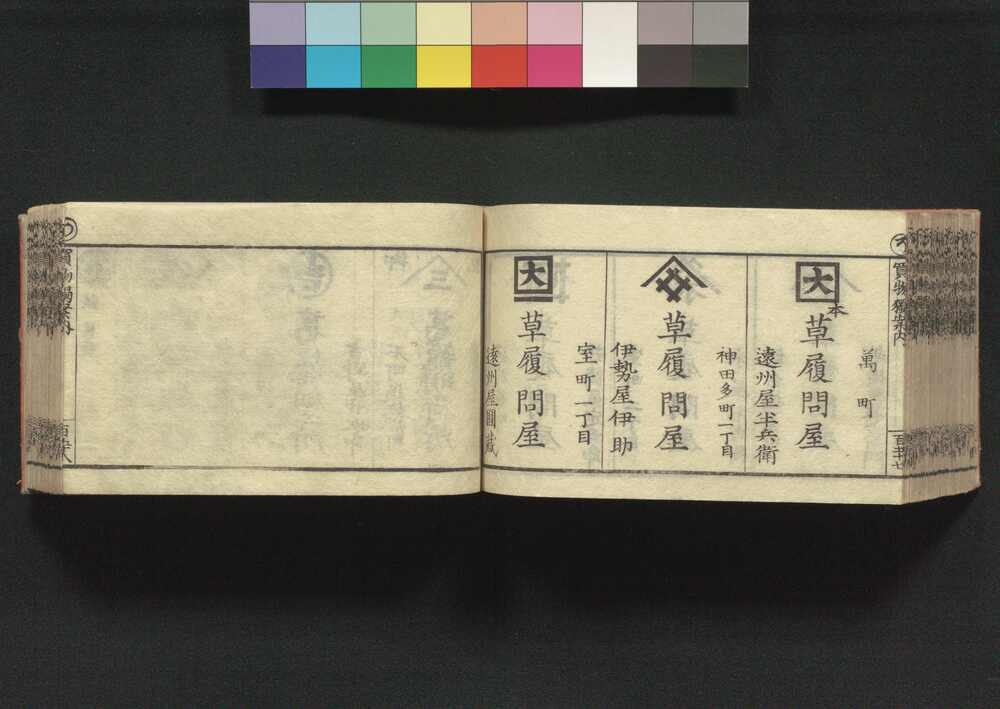 買物獨案内
萬町
大
本
草履問屋
遠州屋半兵衛
神田多町一丁目
草履問屋
伊勢屋伊助
室町一丁目
大
草履問屋
遠州屋圓蔵